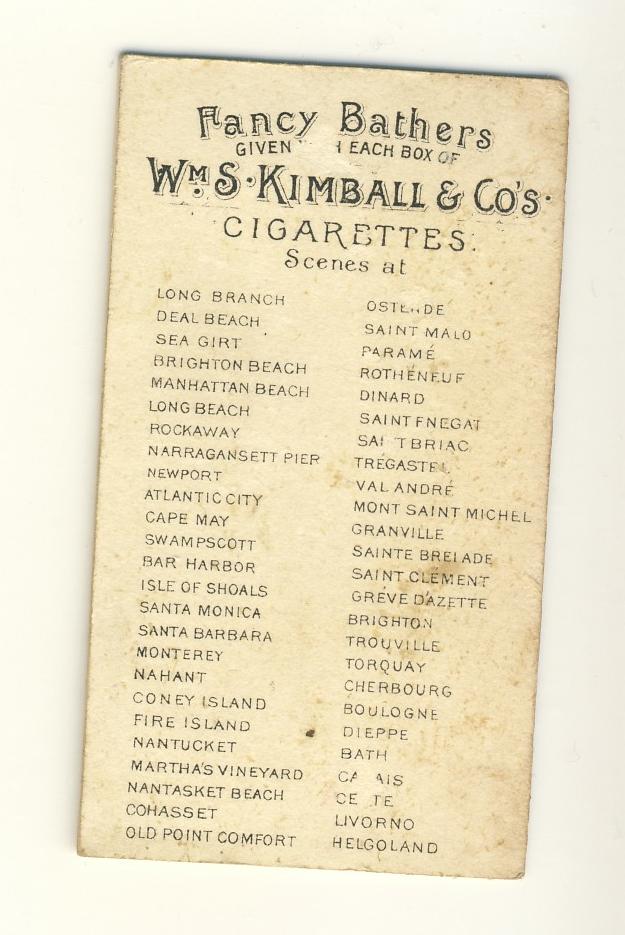 Fancy Bathers
GIVEN EACH BOX OF
WM S. KIMBALL & CO'S.
CIGARETTES.
Scenes at
LONG BRANCH
DEAL BEACH
SEA GIRT
BRIGHTON BEACH
MANHATTAN BEACH
LONG BEACH
ROCKAWAY
NARRAGANSETT PIER
NEWPORT
ATLANTIC CITY
CAPE MAY
SWAMPSCOTT
BAR HARBOR
ISLE OF SHOALS
SANTA MONICA
SANTA BARBARA
MONTEREY
NAHANT
CONEY ISLAND
FIRE ISLAND
NANTUCKET
MARTHA'S VINEYARD
NANTASKET BEACH
COHASSET
OLD POINT COMFORT
OSTENDE
SAINT MALO
PARAMÉ
ROTHÉNEUF
DINARD
SAINT ENEGAT
SAINT BRIAC
TRÉGASTEL
VAL ANDRÉ
MONT SAINT MICHEL
GRANVILLE
SAINTE BRELADE
SAINT CLÉMENT
GRÈVE D'AZETTE
BRIGHTON
TROUVILLE
TORQUAY
CHERBOURG
BOULOGNE
DIEPPE
BATH
CALAIS
LIVORNO
HELGOLAND